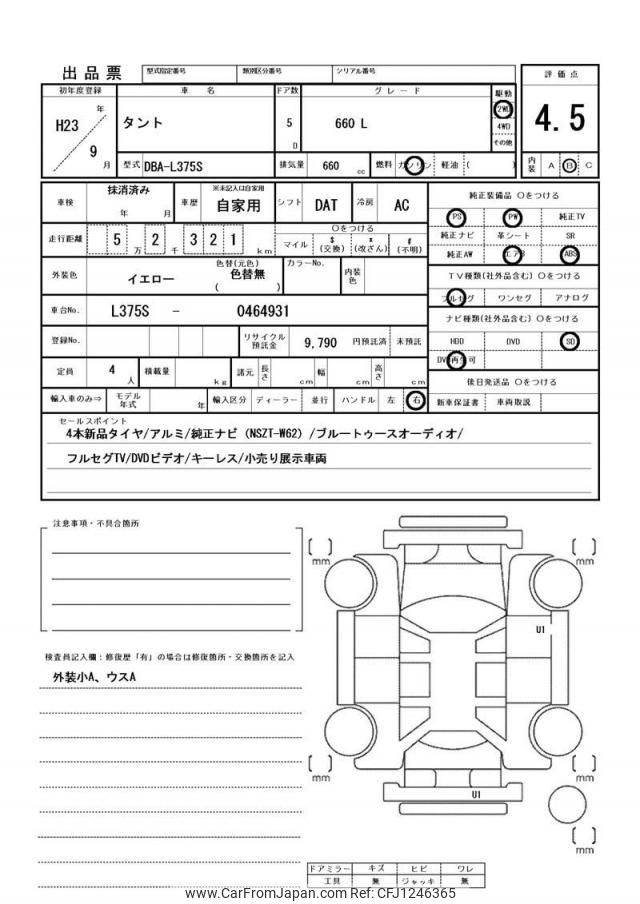 出品票 型式指定番号 類別区分番号 シリアル番号
評価点
4.5
初年度登録 車名 ドア数 グレード 駆動
H23 年 9 月 タント 5 D 660 L 2WD
4WD
その他
型式 DBA-L375S 排気量 660 cc 燃料 ガソリン 軽油 ( )
内装 A B C
車検 抹消済み 年 月 車歴 ※未記入は自家用 自家用 シフト DAT 冷房 AC
走行距離 5 万 2 千 3 2 1 km
○をつける
マイル $ (交換) * (改ざん) # (不明)
外装色 イエロー 色替(元色) 色替無 ( ) カラーNo. 内装色
車台No. L375S - 0464931
登録No. リサイクル預託金 9,790 円預託済 未預託
定員 4 人 積載量 kg 諸元 長さ cm 幅 cm 高さ cm
輸入車のみ⇒ モデル年式 年 輸入区分 ディーラー 並行 ハンドル 左 右
純正装備品 ○をつける
PS PW 純正TV
純正ナビ 革シート SR
純正AW エアB ABS
TV種類(社外品含む) ○をつける
フルセグ ワンセグ アナログ
ナビ種類(社外品含む) ○をつける
HDD DVD SD
DVD再生可
後日発送品 ○をつける
新車保証書 車両取説
セールスポイント
4本新品タイヤ/アルミ/純正ナビ (NSZT-W62) /ブルートゥースオーディオ/
フルセグTV/DVDビデオ/キーレス/小売り展示車両
注意事項・不具合箇所
検査員記入欄：修復歴「有」の場合は修復箇所・交換箇所を記入
外装小A、ウスA
mm
mm
U1
mm
mm
U1
mm
ドアミラー キズ ヒビ ワレ
工具 無 ジャッキ 無
www.CarFromJapan.com Ref: CFJ1246365